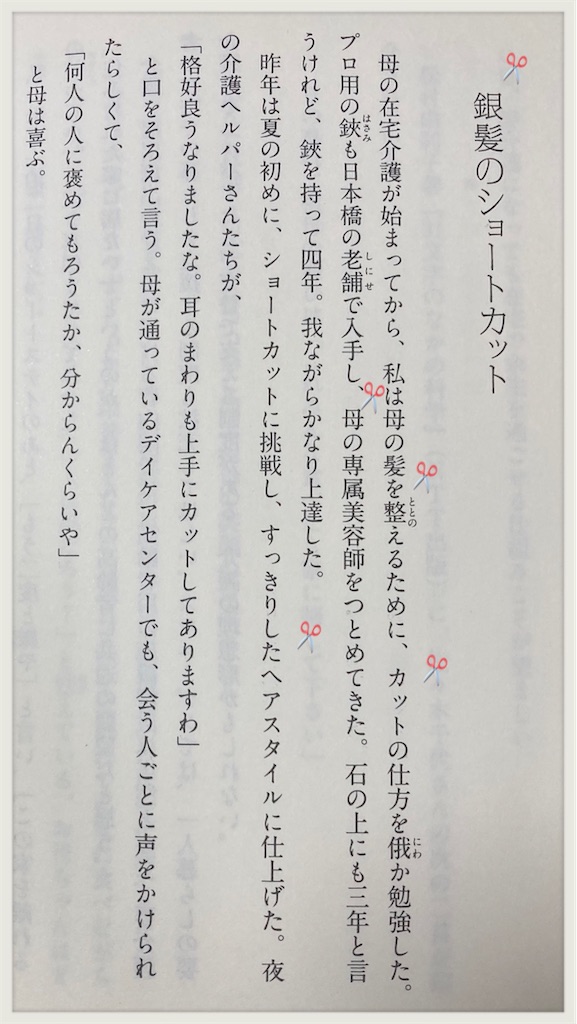 銀髪のショートカット
母の在宅介護が始まってから、私は母の髪を整えるために、カットの仕方を俄か勉強した。
プロ用の鋏も日本橋の老舗で入手し、母の専属美容師をつとめてきた。石の上にも三年と言
うけれど、鋏を持って四年。我ながらかなり上達した。
昨年は夏の初めに、ショートカットに挑戦し、すっきりしたヘアスタイルに仕上げた。夜
の介護ヘルパーさんたちが、
「格好良うなりましたな。耳のまわりも上手にカットしてありますわ」
と口をそろえて言う。母が通っているデイケアセンターでも、会う人ごとに声をかけられ
たらしくて、
「何人の人に褒めてもろうたか、分からんくらいや」
と母は喜ぶ。